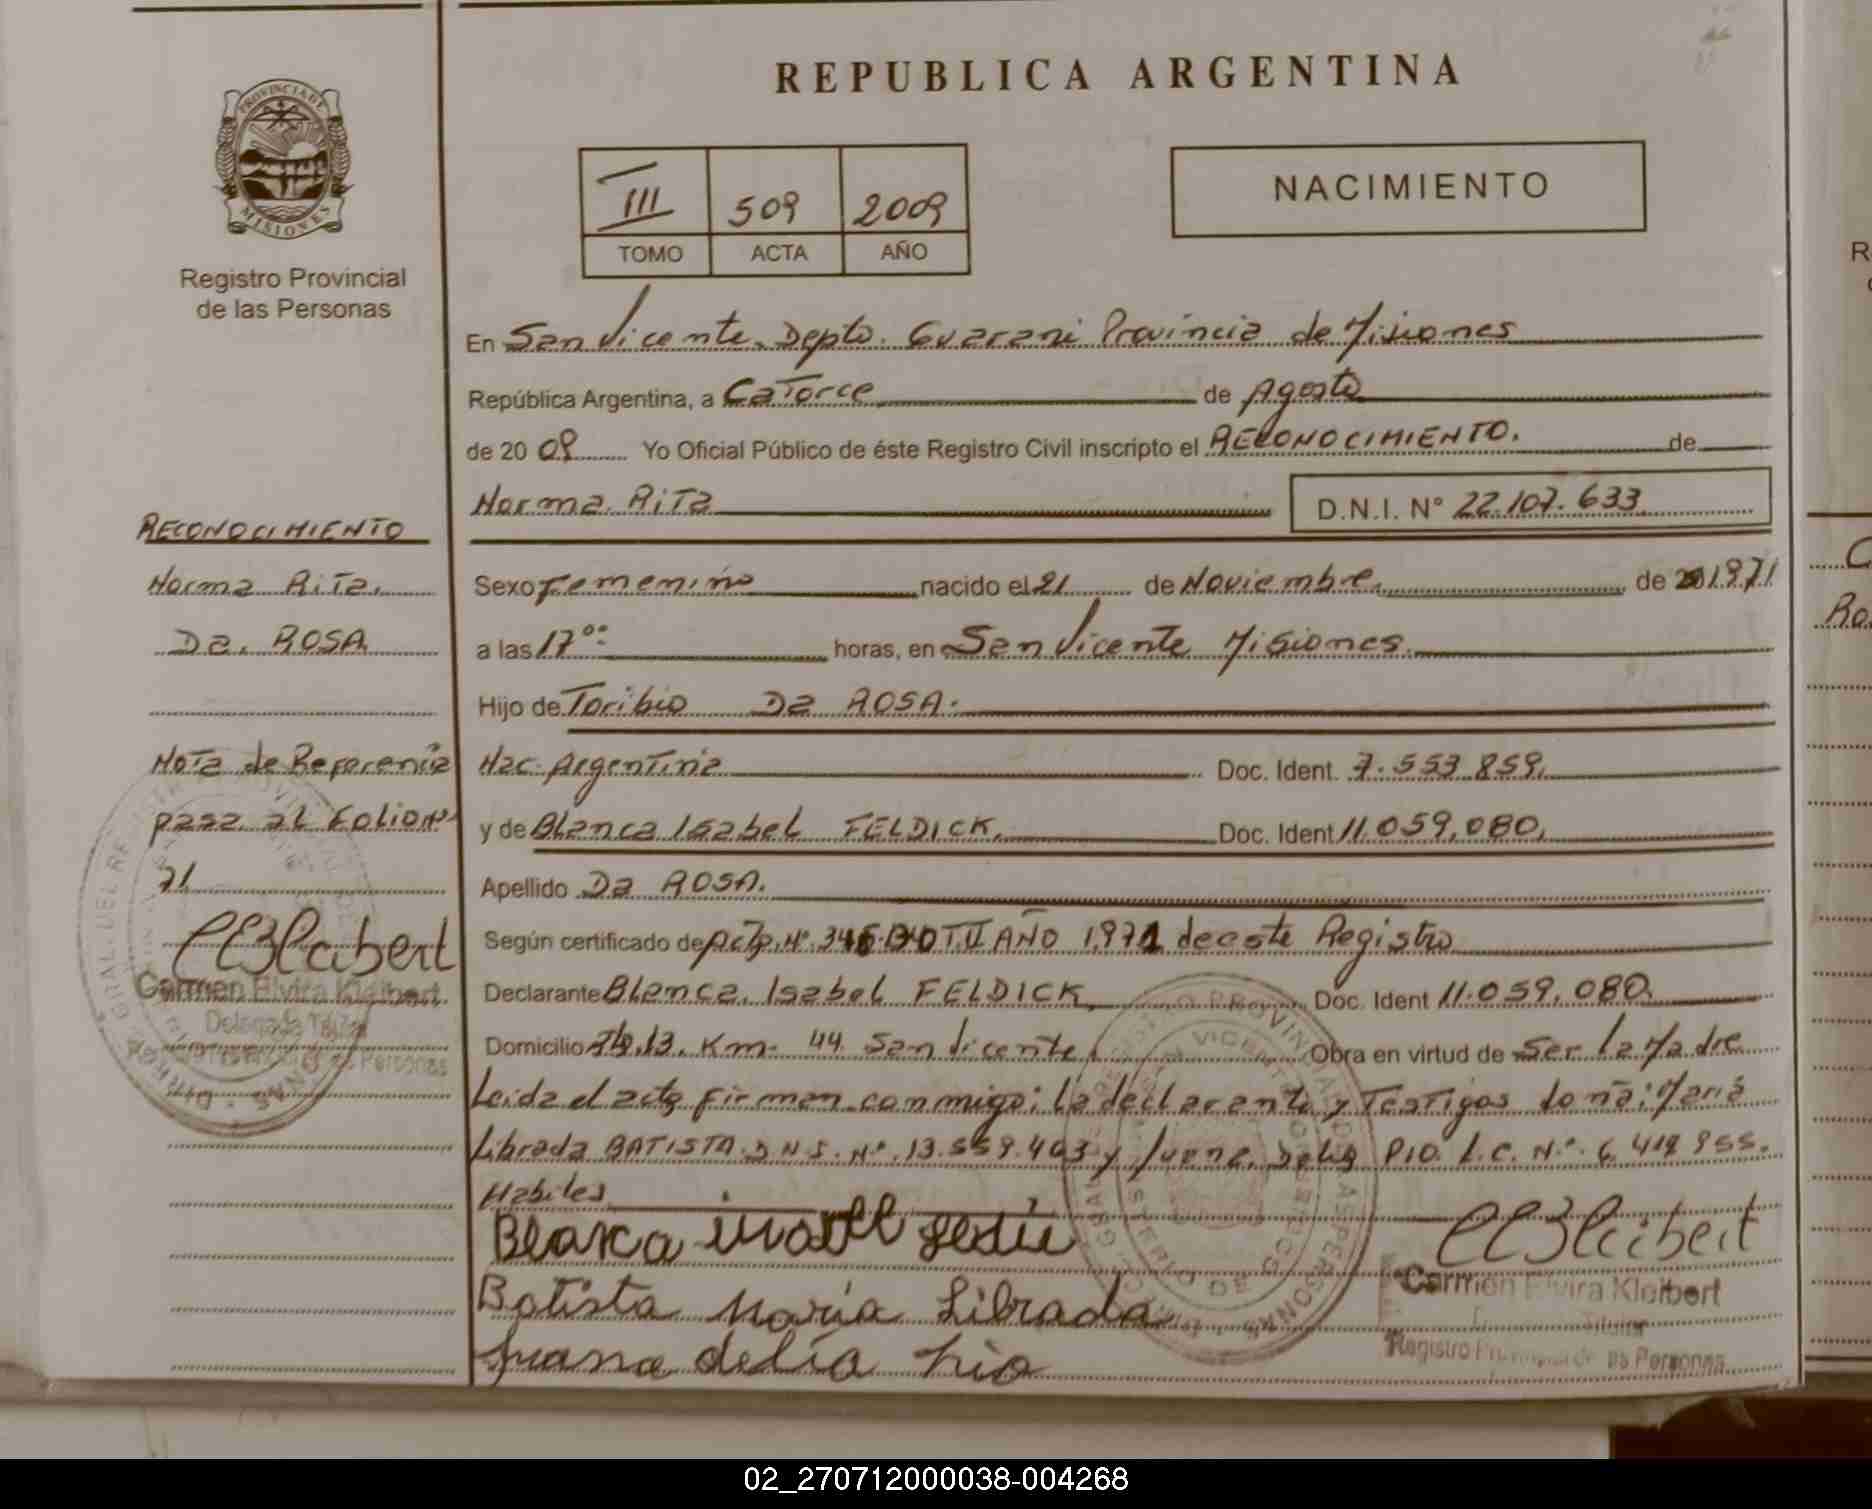 REPUBLICA ARGENTINA
PROVINCIA DE
MISIONES
Registro Provincial
de las Personas
III 509 2009
TOMO ACTA AÑO
NACIMIENTO
En San Vicente, Depto. Guarani Provincia de Misiones
República Argentina, a Catorce de Agosto
de 20 09 Yo Oficial Público de éste Registro Civil inscripto el RECONOCIMIENTO. de
Norma Rita D.N.I. N° 22.107.633
RECONOCIMIENTO
Norma Rita.
Da. ROSA
Sexo Femenino nacido el 21 de Noviembre de 1971
a las 17°° horas, en San Vicente Misiones.
Hijo de Toribio Da ROSA.
Nota de Referencia
pasa al Folio N°
71
Nac. Argentina Doc. Ident. 7.553.859.
y de Blanca Isabel FELDICK. Doc. Ident 11.059.080.
Apellido Da ROSA.
Según certificado de Acta. N° T.II AÑO 1971 de este Registro
Declarante Blanca Isabel FELDICK. Doc. Ident 11.059.080.
Domicilio Km. 44 San Vicente Obra en virtud de Ser la Madre
Leida el acta firman conmigo; la declarante y Testigos doña: Maria
Librada BATISTA D.N.I. N° 13.559.403 y Juana Delia PIO L.C. N°
Habiles
Blanca
Batista María Librada
Juana delia Pio
Carmen Elvira Kleibert
Delegada Titular
Registro Provincial de las Personas
Carmen Elvira Kleibert
Titular
Registro Provincial de las Personas
02_270712000038-004268